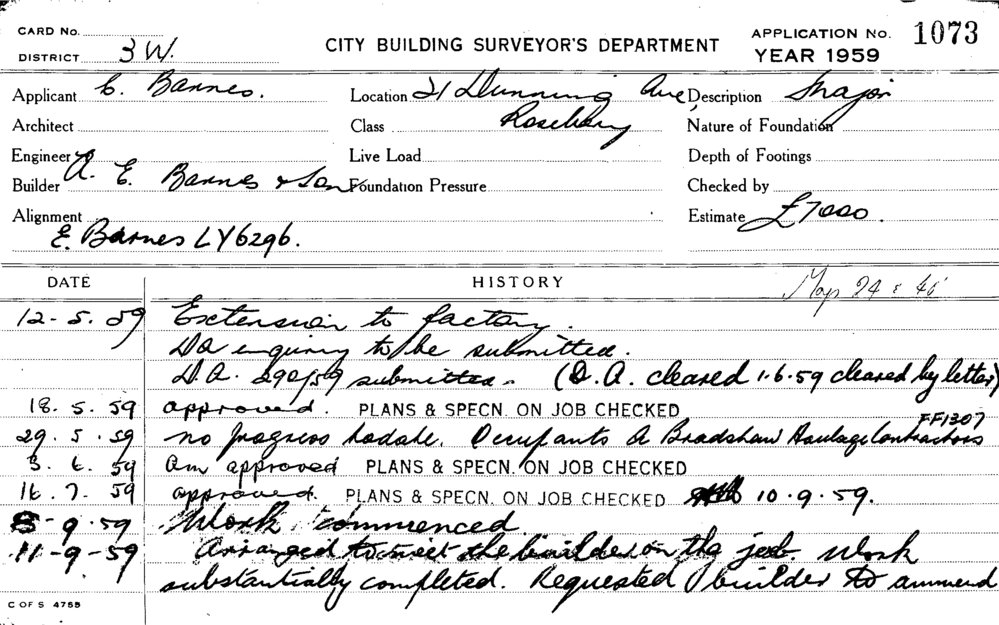 CARD No.
DISTRICT 3 W.
CITY BUILDING SURVEYOR'S DEPARTMENT
APPLICATION No. 1073
YEAR 1959
Applicant C. Barnes. Location 21 Dunning Ave, Description Major
Architect Class Rosebery Nature of Foundation
Engineer Live Load Depth of Footings
Builder A. E. Barnes & Son Foundation Pressure Checked by
Alignment Estimate £7000.
E. Barnes LY6296.
DATE HISTORY Map 24 & 46
12-5.59 Extension to factory.
DA enquiry to be submitted.
D.A. 290/59 submitted. (D.A. cleared 1.6.59 cleared by letter)
18.5.59 approved. PLANS & SPECN. ON JOB CHECKED
FF1307
29.5.59 no progress todate. Occupants A Bradshaw Haulage Contractors
3.6.59 am approved PLANS & SPECN. ON JOB CHECKED
16.7.59 approved. PLANS & SPECN. ON JOB CHECKED 10.9.59.
8-9.59 Work commenced
11-9-59 Arranged to meet the builder on the job. Work
substantially completed. Requested builder to ammend
C OF S 4755